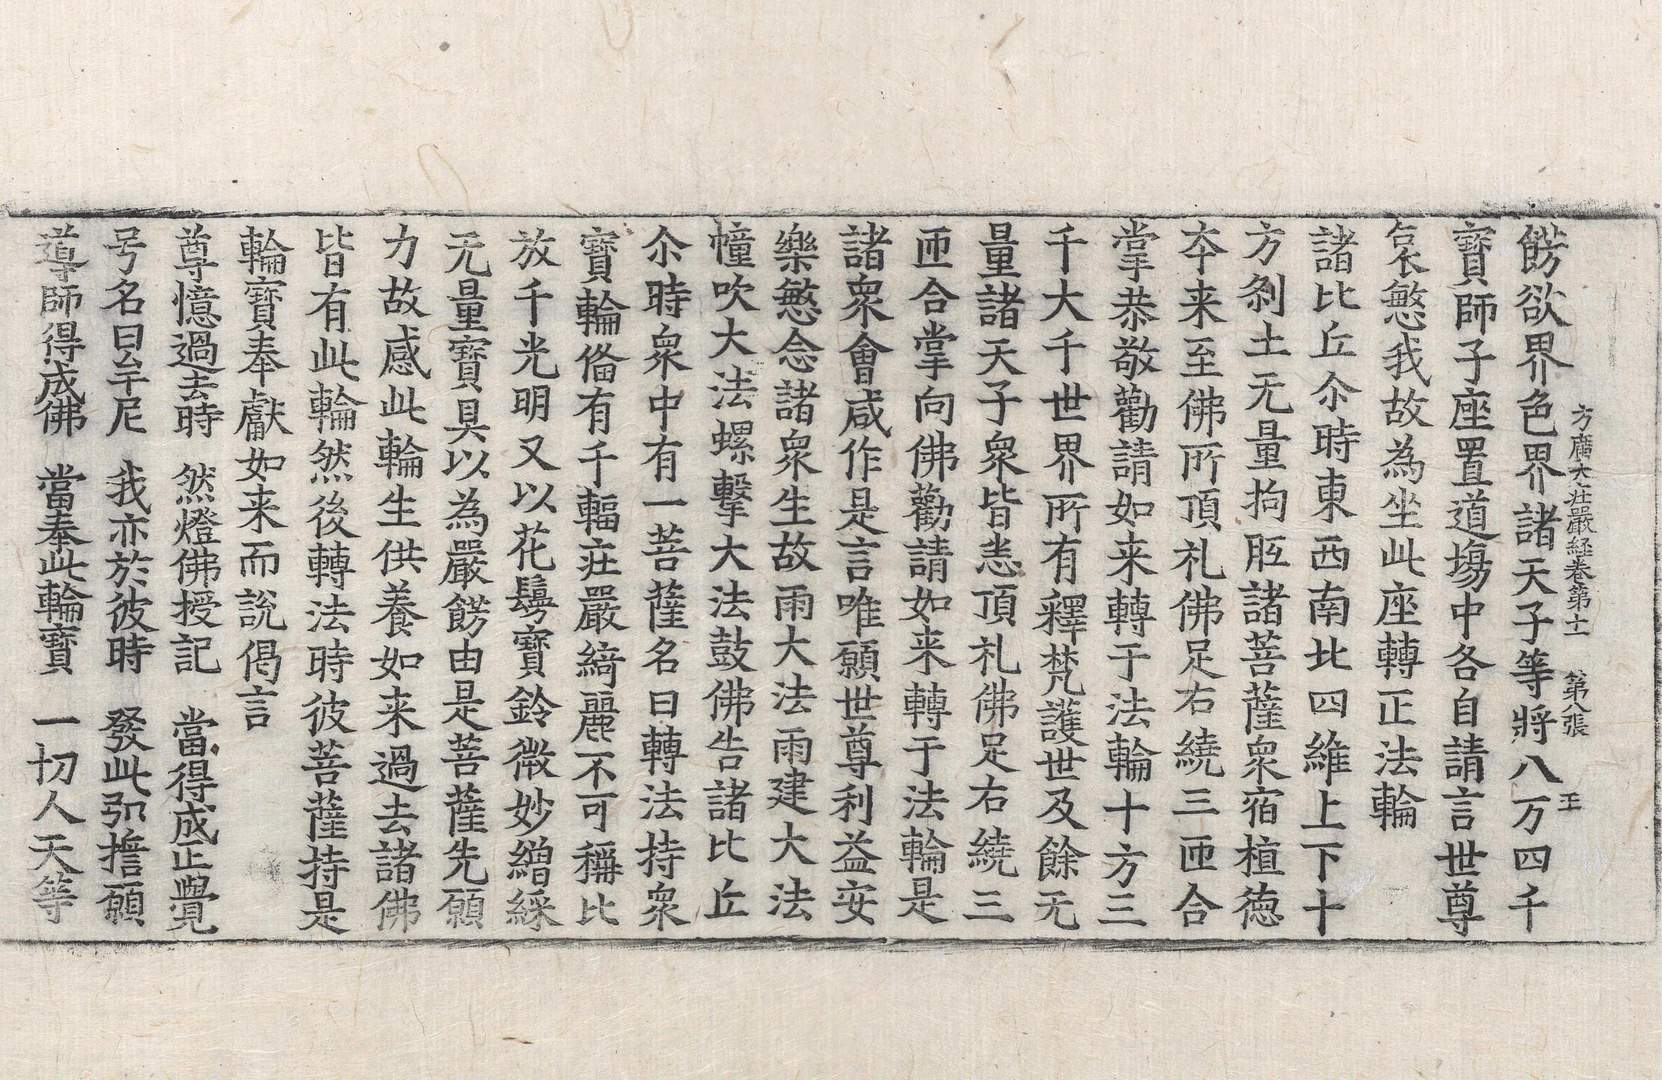 方廣大莊嚴経卷第十一 第八張 王
餝欲界色界諸天子等將八万四千
寳師子座置道場中各自請言世尊
哀愍我故為坐此座轉正法輪
諸比丘尒時東西南北四維上下十
方剎土无量拘胝諸菩薩衆宿植德
夲来至佛所頂礼佛足右繞三匝合
掌恭敬勸請如来轉于法輪十方三
千大千世界所有釋梵護世及餘无
量諸天子衆皆悉頂礼佛足右繞三
匝合掌向佛勸請如来轉于法輪是
諸衆會咸作是言唯願世尊利益安
樂愍念諸衆生故雨大法雨建大法
幢吹大法螺擊大法鼓佛告諸比丘
尒時衆中有一菩薩名曰轉法持衆
寳輪俻有千輻莊嚴綺麗不可稱比
放千光明又以花鬘寳鈴微妙繒綵
无量寳具以為嚴餝由是菩薩先願
力故感此輪生供養如来過去諸佛
皆有此輪然後轉法時彼菩薩持是
輪寳奉獻如来而說偈言
尊憶過去時 然燈佛授記 當得成正覺
号名曰牟尼 我亦於彼時 發此弘擔願
導師得成佛 當奉此輪寳 一切人天等